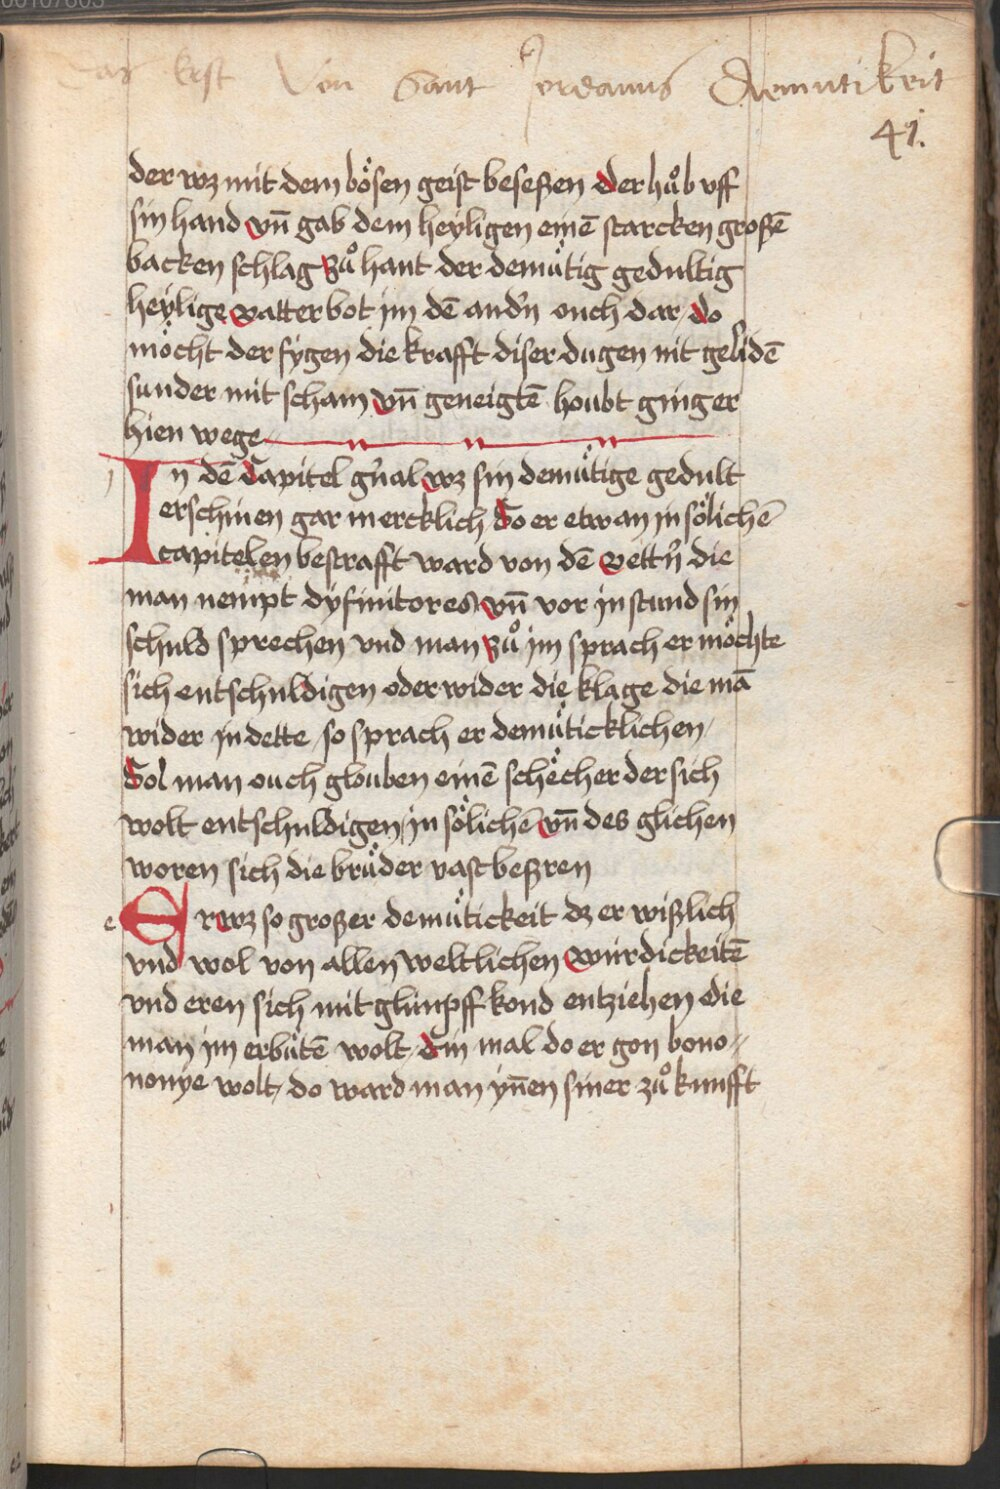 Das erst Von Sant Jordanus Demutikeit
41.
der wz mit dem bösen geist beseßen der huͦb vff
sin hand vn̄ gab dem heyligen einē starcken großē
backen schlag Zuͦ hant der demuͤtig gedultig
heylige vatter bot jm dē andn̄ ouch dar / do
möcht der fygen die krafft diser dugen nit gelidē
sunder mit scham vn̄ geneigtē houbt ging er
hien wege
In dē Capitel gn̄al wz sin demuͤtige gedult
erschinen gar mercklich So er etwan jn sölichē
capitelen bestrafft ward von dē vettn̄ die
man nempt dyfinitores vn̄ vor jn stund sin
schuld sprechen vnd man Zuͦ jm sprach er möchte
sich entschuldigen oder wider die klage die mā
wider jn dette / so sprach er demuͤticklichen /
Sol man ouch glouben einē schecher der sich
wolt entschuldigen / jn sölichē vn̄ des glichen
woren sich die bruͤder vast beßren
e
Er wz so großer demuͤtickeit dz er wißlich
vnd wol von allen weltlichen wirdickeitē
vnd eren sich mit glimpff kond entziehen die
man jm erbuͤtē wolt / Ein mal do er gon bono⸗
nonye wolt / do ward man ÿn̄en siner zuͦ kunfft